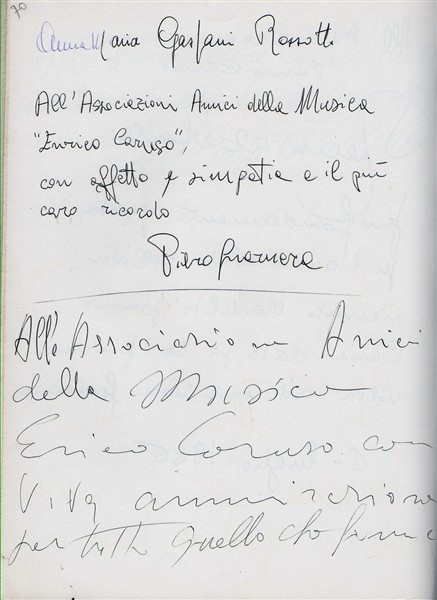 70
Anna Maria Gasfani Rossotti
All'Associazioni Amici della Musica
"Enrico Caruso",
con affetto e simpatia e il più
caro ricordo
Piero Guarnera
All'Associazion Amici
della Musica
Enrico Caruso con
viva ammirazione
per tutto quello che fanno